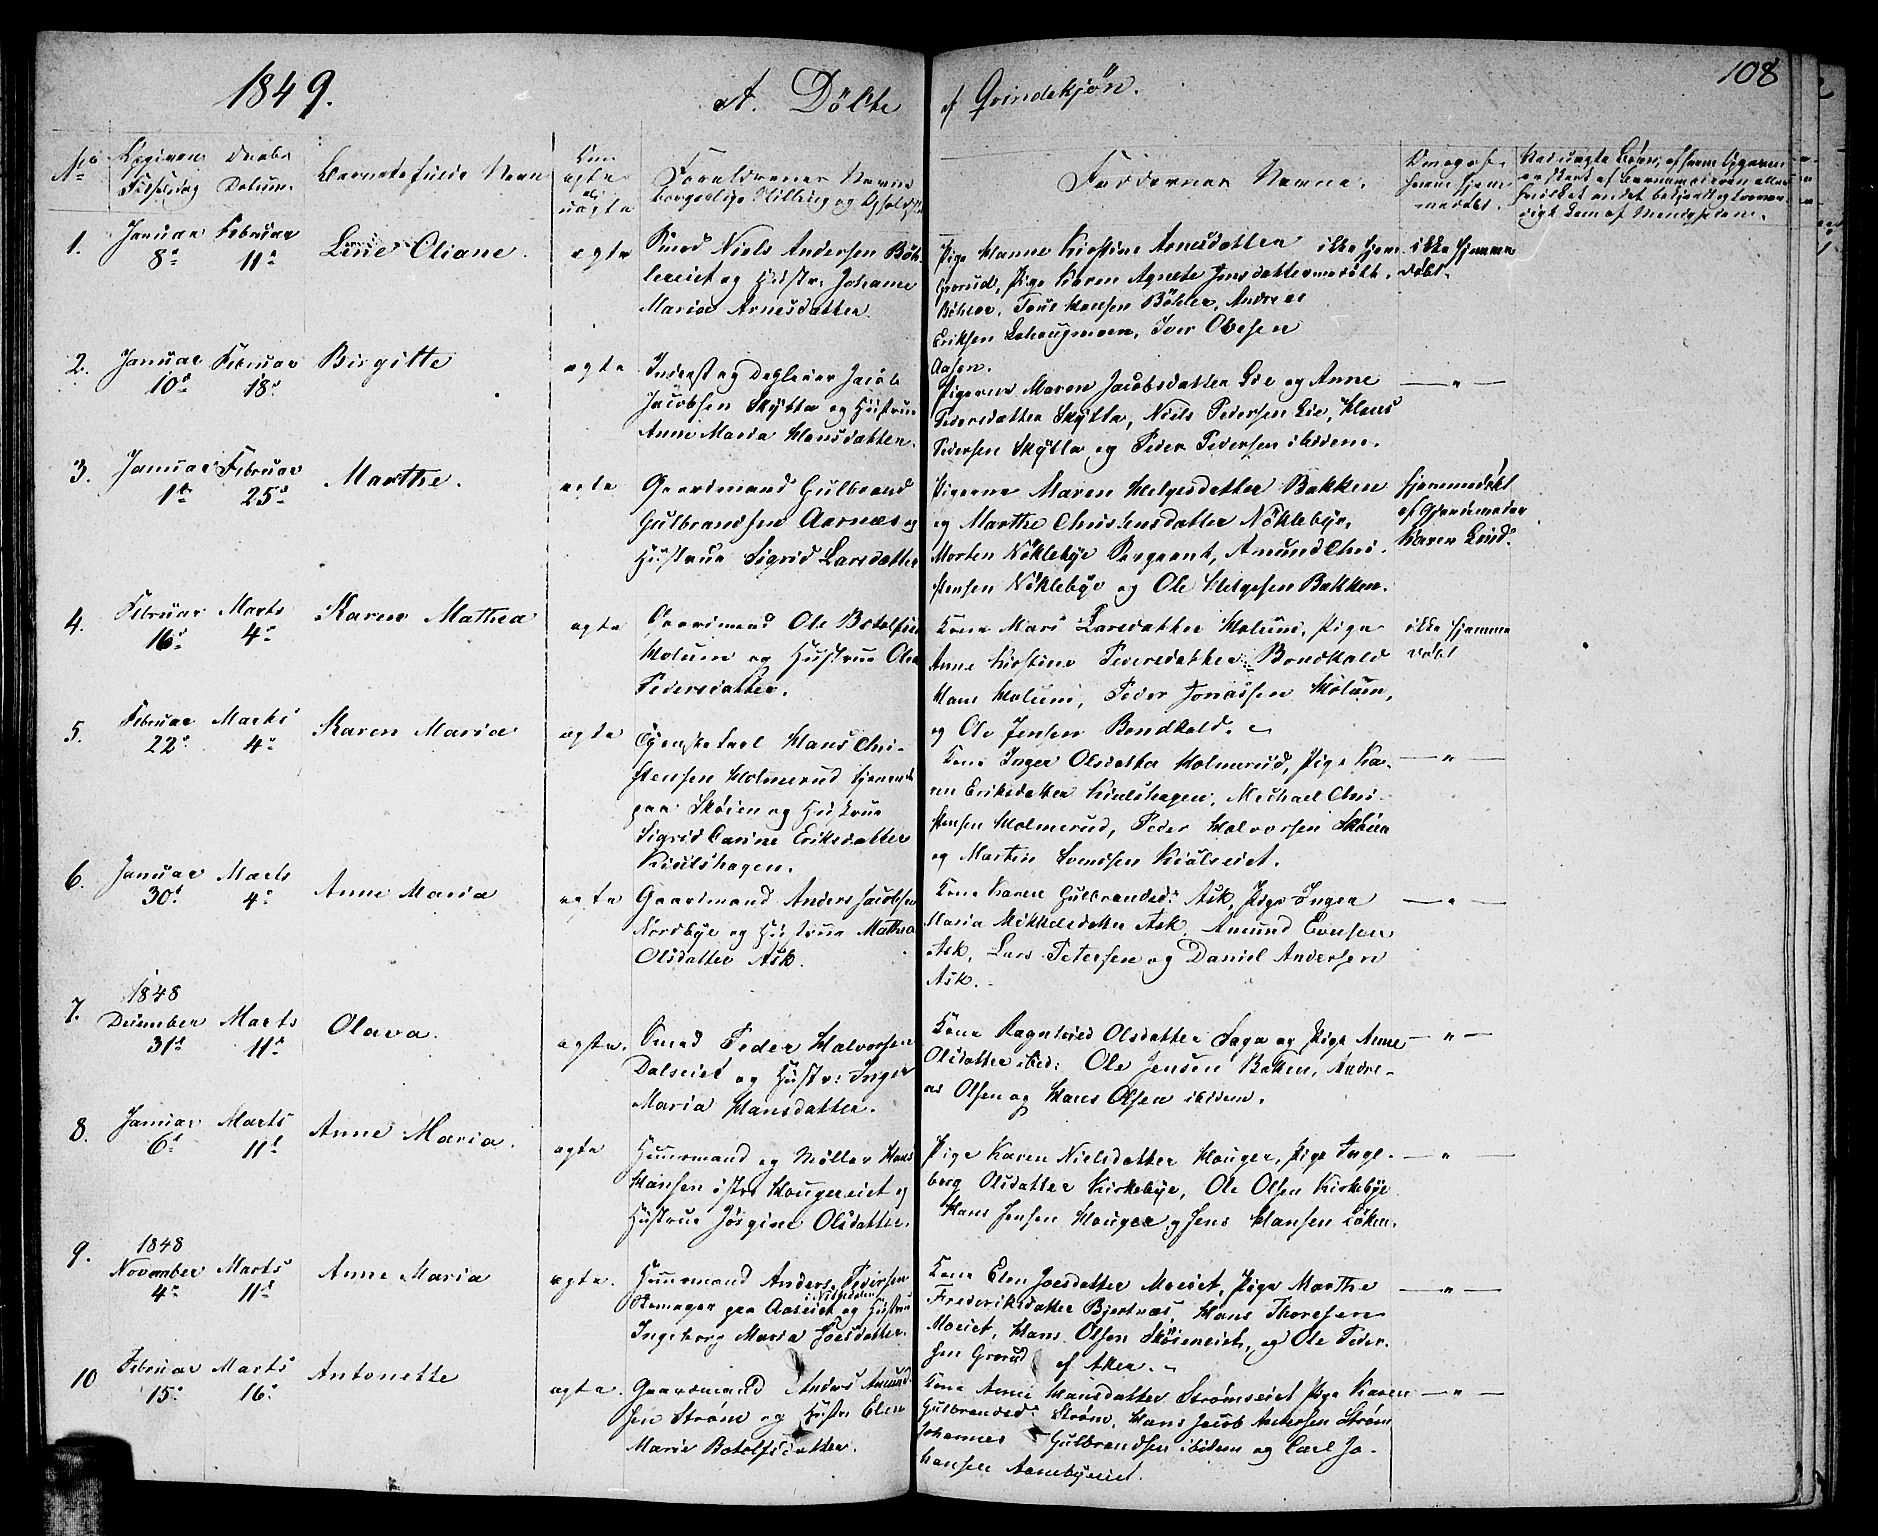 1849. A. Döbte af Qvindekjön. 108
No Opgiven Fødselsdag Daabs Datum Barnets fulde Navn Om ægte eller uægte Forældrenes Navne borgerlige Stilling og Opholdssted
Faddernes Navne. Om egte hjemmedøbt.
1. Januar 8de Februar 11te Line Oliane. ægte
Smed Niels Andersen Böh-
lereiet og Hustr: Johanne
Maria Arnesdatter.
Pige Hanne Kirstine Arnesdatter
Grorud, Pige Karen Agnete Jensdatter
Böhler, Tove Hansen Böhler, Andreas
Eriksen Lohaugmoen, Iver Olesen
Aasen.
ikke hjemme
døbt.
2. Januar 10de Februar 18de Birgitte ægte
Inderst og Dagleier Jacob
Jacobsen Skÿtta og Hustrue
Anne Maria Hansdatter.
Pigerne Maren Jacobsdatter Lie og Anne
Pedersdatter Skÿtta, Niels Pedersen Lie, Hans
Pedersen Skÿtta og Peder Pedersen ibidem.
— " —
3. Januar 1te Februar 25de Marthe. ægte
Gaardmand Gulbrand
Gulbrandsen Aarnæs og
Hustrue Sigrid Larsdatter
Pigerne Maren Helgesdatter Bakken
og Marthe Christensdatter Nöklebye,
Morten Nöklebye Sergeant, Amund Chri-
stensen Nöklebye og Ole Helgesen Bakken.
hjemmedøbt
af Gjordemoder
Karen Lind.
4. Februar 16de Marts 4de Karen Mathea ægte
Gaardmand Ole Botolfsen
Holum og Hustrue Olea
Pedersdatter.
Kone Mari Larsdatter Holum, Pige
Anne Kirstine Pedersdatter Bondkald
Hans Holum, Peder Jonassen Holum,
og Ole Jensen Bondkald.
ikke hjemme
døbt
5. Februar 22de Marts 4de Karen Maria ægte
Hans Chri-
stensen Holmerud tjenende
paa Skøien og Hustrue
Sigrid Carine Eriksdatter
Kiulshagen.
Kone Inger Olsdatter Holmerud, Pige Ka-
ren Eriksdatter Kiulshagen, Michael Chri-
stensen Holmerud, Peder Halvorsen Skøien
og Martin Svendsen Kiulseiet.
— " —
6. Januar 30de Marts 4de Anne Maria ægte
Gaardmand Anders Jacobsen
Nordbye og Hustrue Mathea
Olsdatter Ask.
Kone Karen Gulbrandsd: Ask, Pige Inger
Maria Mikkelsdatter Ask, Amund Evensen
Ask, Lars Petersen og Daniel Andersen
Ask.
— " —
7. 1848 December 31te Marts 11te Olava. ægte.
Smed Peder Halvorsen
Dalseiet og Hustr: Inger
Maria Hansdatter.
Kone Ragnhild Olsdatter Saga og Pige Anne
Olsdatter ibid: Ole Jensen Bakken, Andre-
as Olsen og Hans Olsen ibidem.
— " —
8. Januar 6te Marts 11te Anne Maria. ægte
Huusmand og Møller Hans
Hansen østre Haugereiet og
Hustrue Jørgine Olsdatter.
Pige Karen Nielsdatter Hauger, Pige Inge-
borg Olsdatter Kirkebye, Ole Olsen Kirkebye
Hans Jensen Hauger og Jens Hansen Løken.
— " —
9. 1848 November 4de Marts 11te Anne Maria ægte.
Huusmand Anders Pedersen
Skomager paa Aaseiet i Nitedalen og Hustrue
Ingeborg Maria Joesdatter.
Kone Elen Joesdatter Moeiet, Pige Marthe
Frederiksdatter Bjertnæs, Hans Thoresen
Moeiet, Hans Olsen Skøieneiet, og Ole Peder-
sen Grorud af Aker.
— " —
10 Februar 15de Marts 16de Antonette ægte.
Gaardmand Anders Amund-
sen Strøm og Hustr: Elen
Marie Botolfsdatter.
Kone Anne Hansdatter Strømseiet Pige Karen
Gulbrandsd: Strøm, Hans Jacob Andersen Strøm
Johannes Gulbrandsen ibidem og Carl Jo-
hansen Aanebyeiet.
— " —